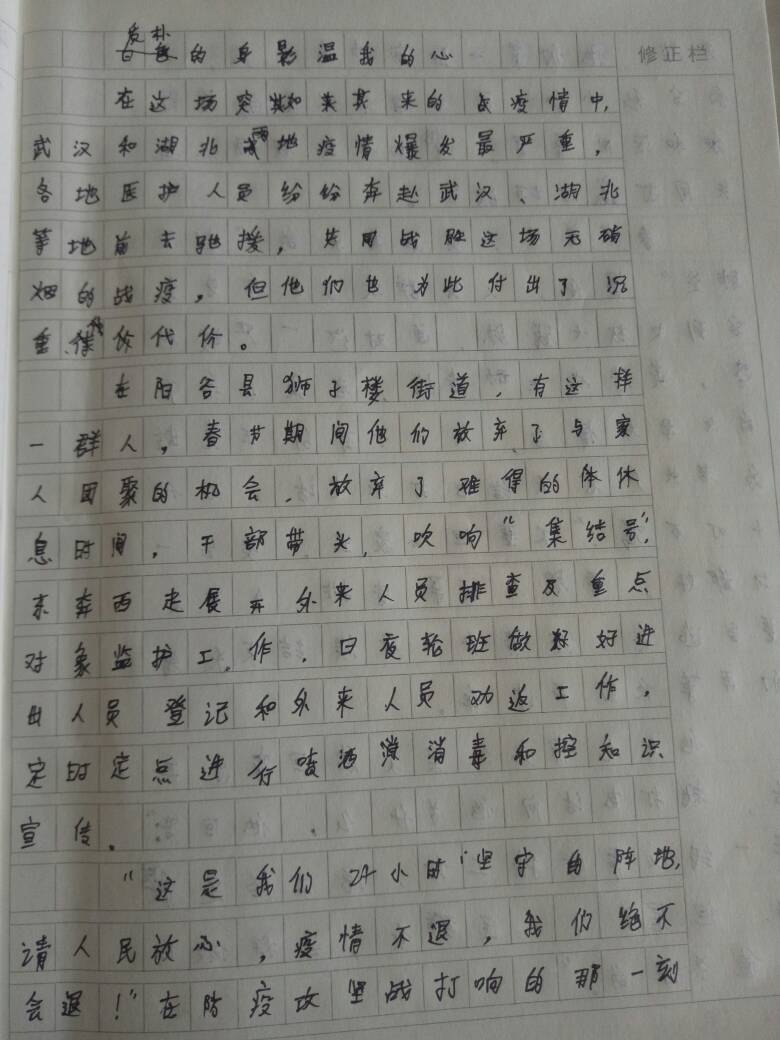 修正栏
的身影温我的心
在这场突如其来的疫情中,
武汉和湖北两地疫情爆发最严重,
各地医护人员纷纷奔赴武汉、湖北
等地前去驰援,共同战胜这场无硝
烟的战疫,但他们也为此付出了沉
重代价代价。
在阳谷县狮子楼街道,有这样
一群人,春节期间他们放弃了与家
人团聚的机会,放弃了难得的体休
息时间,干部带头,吹响“集结号”,
东奔西走展开外来人员排查及重点
对象监护工作,日夜轮班做好好进
出人员登记和外来人员劝返工作,
定时定点进行喷洒消毒和控知识
宣传。
“这是我们24小时坚守的阵地,
请人民放心,疫情不退,我们绝不
会退!”在防疫攻坚战打响的那一刻